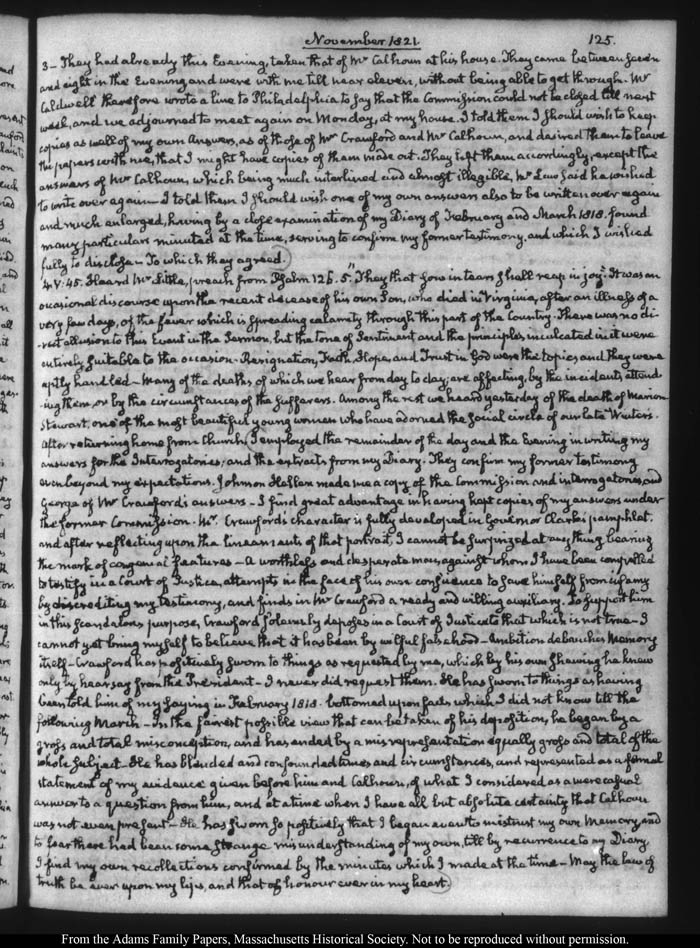 November 1821.
125.
3- They had already this Evening, taken that of Mr Calhoun at his house. They came between seven
and eight in the Evening and were with me till near eleven, without being able to get through. Mr
Caldwell therefore wrote a line to Philadelphia to say that the Commission could not be closed till next
week, and we adjourned to meet again on Monday, at my house. I told them I should wish to keep
copies as well of my own Answers, as of those of Mr Crawford and Mr Calhoun, and desired them to leave
the papers with me, that I might have copies of them made out. They left them accordingly, except the
answers of Mr Calhoun, which being much interlined and almost illegible, Mr Law said he wished
to write over again- I told them I should wish one of my own answers also to be written over again
and much enlarged, having by a close examination of my Diary of February and March 1818. found
many particulars minuted at the time, serving to confirm my former testimony, and which I wished
fully to disclose- To which they agreed.
4. V:45. Heard Mr Little, preach from Psalm 126. 5. "They that sow in tears shall reap in joy." It was an
occasional discourse upon the recent decease of his own Son, who died in Virginia, after an illness of a
very few days, of the fever which is spreading calamity through this part of the Country. There was no di-
-rect allusion to this Event in the Sermon, but the tone of Sentiment and the principles inculcated in it were
entirely suitable to the occasion- Resignation, Faith, Hope, and Trust in God were the topics and they were
aptly handled- Many of the deaths of which we hear from day to day, are affecting, by the incidents attend-
-ing them, or by the circumstances of the sufferers. Among the rest we heard yesterday of the death of Marion
Stewart, one of the most beautiful young women who have adorned the social circle of our late Winters.
After returning home from Church, I employed the remainder of the day and the Evening in writing my
answers for the Interrogatories, and the extracts from my Diary. They confirm my former testimony
even beyond my expectations. Johnson Hellen made me a copy of the Commission and interrogatories, and
George of Mr Crawford's answers- I find great advantage in having kept copies of my answers under
the former Commission. Mr. Crawford's character is fully developed in Governor Clark's pamphlet.
and after reflecting upon the lineaments of that portrait, I cannot be surprized at any thing bearing
the mark of congenial features- A worthless and desperate man, against whom I have been compelled
to testify in a Court of Justice, attempts in the face of his own conscience to save himself from infamy
by discrediting my testimony, and finds in Mr Crawford a ready and willing auxiliary. To support him
in this scandalous purpose, Crawford solemnly deposes in a Court of Justice to that which is not true- I
cannot yet bring myself to believe that it has been by wilful falsehood- Ambition debauches Memory
itself- Crawford has positively sworn to things as requested by me, which by his own shewing he knew
only by hearsay from the President- I never did request them. He has sworn to things as having
been told him of my saying in February 1818. bottomed upon facts which I did not know till the
following March- In the fairest possible view that can be taken of his deposition, he began by a
gross and total misconception, and has ended by a misrepresentation equally gross and total of the
whole subject- He has blended and confounded times and circumstances, and represented as a formal
statement of my evidence given before him and Calhoun, of what I considered as a mere casual
answer to a question from him, and at a time when I have all but absolute certainty that Calhoun
was not even present- He has sworn so positively that I began even to mistrust my own Memory, and
to fear there had been some strange misunderstanding of my own, till by recurrence to my Diary
I find my own recollections confirmed by the minutes which I made at the time- May the law of
truth be ever upon my lips, and that of honour ever in my heart.
From the Adams Family Papers, Massachusetts Historical Society. Not to be reproduced without permission.